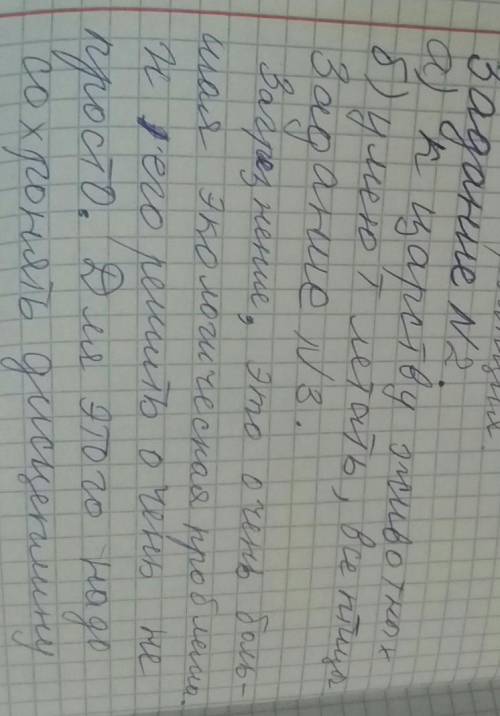 Задание N2.
а) к царству животных
б) умеют летать, все птицы
Задание N3.
Загрязнение, это очень боль-
шая экологическая проблема.
И его решить очень не
просто. Для этого надо
сохронять дисцеплину